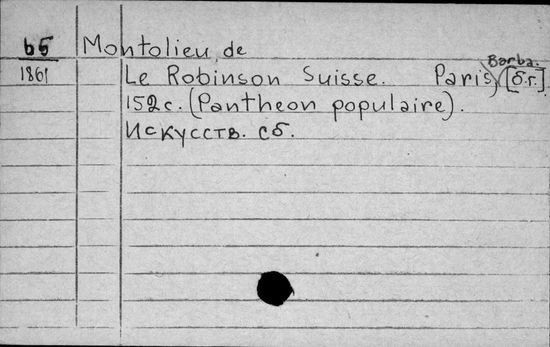 b5 Montolieu, de
1861 Le Robinson Suisse. Paris, Barba. [б.г.]
152 с. (Pantheon populaire).
Искусств. сб.